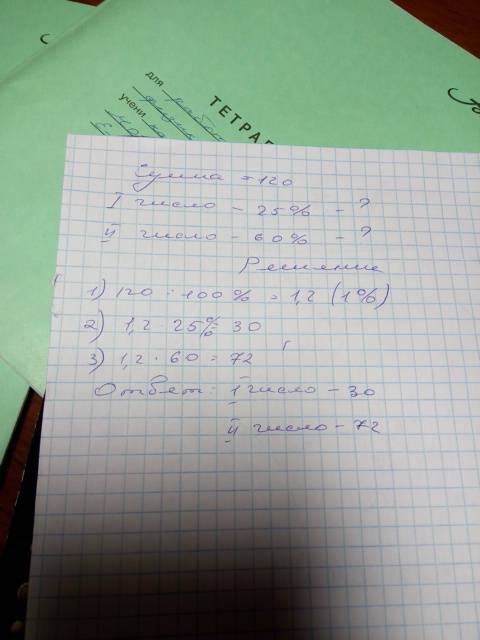 ТЕТРАД
для работ
учени
Сумма = 120
I число - 25% - ?
II число - 60% - ?
Решение
1) 120 : 100% = 1,2 (1%)
2) 1,2 · 25% = 30
3) 1,2 · 60 = 72
Ответ: I число - 30
II число - 72